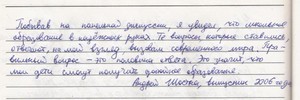 Побывав на панельной дискуссии, я увидел, что школьное
образование в надёжных руках. Те вопросы которые ставились,
отвечают, на мой взгляд вызовам современного мира. Пра-
вильный вопрос - это половина ответа. Это значит, что
мои дети смогут получить достойное образование.
Андрей Шостка, выпускник 2006 года